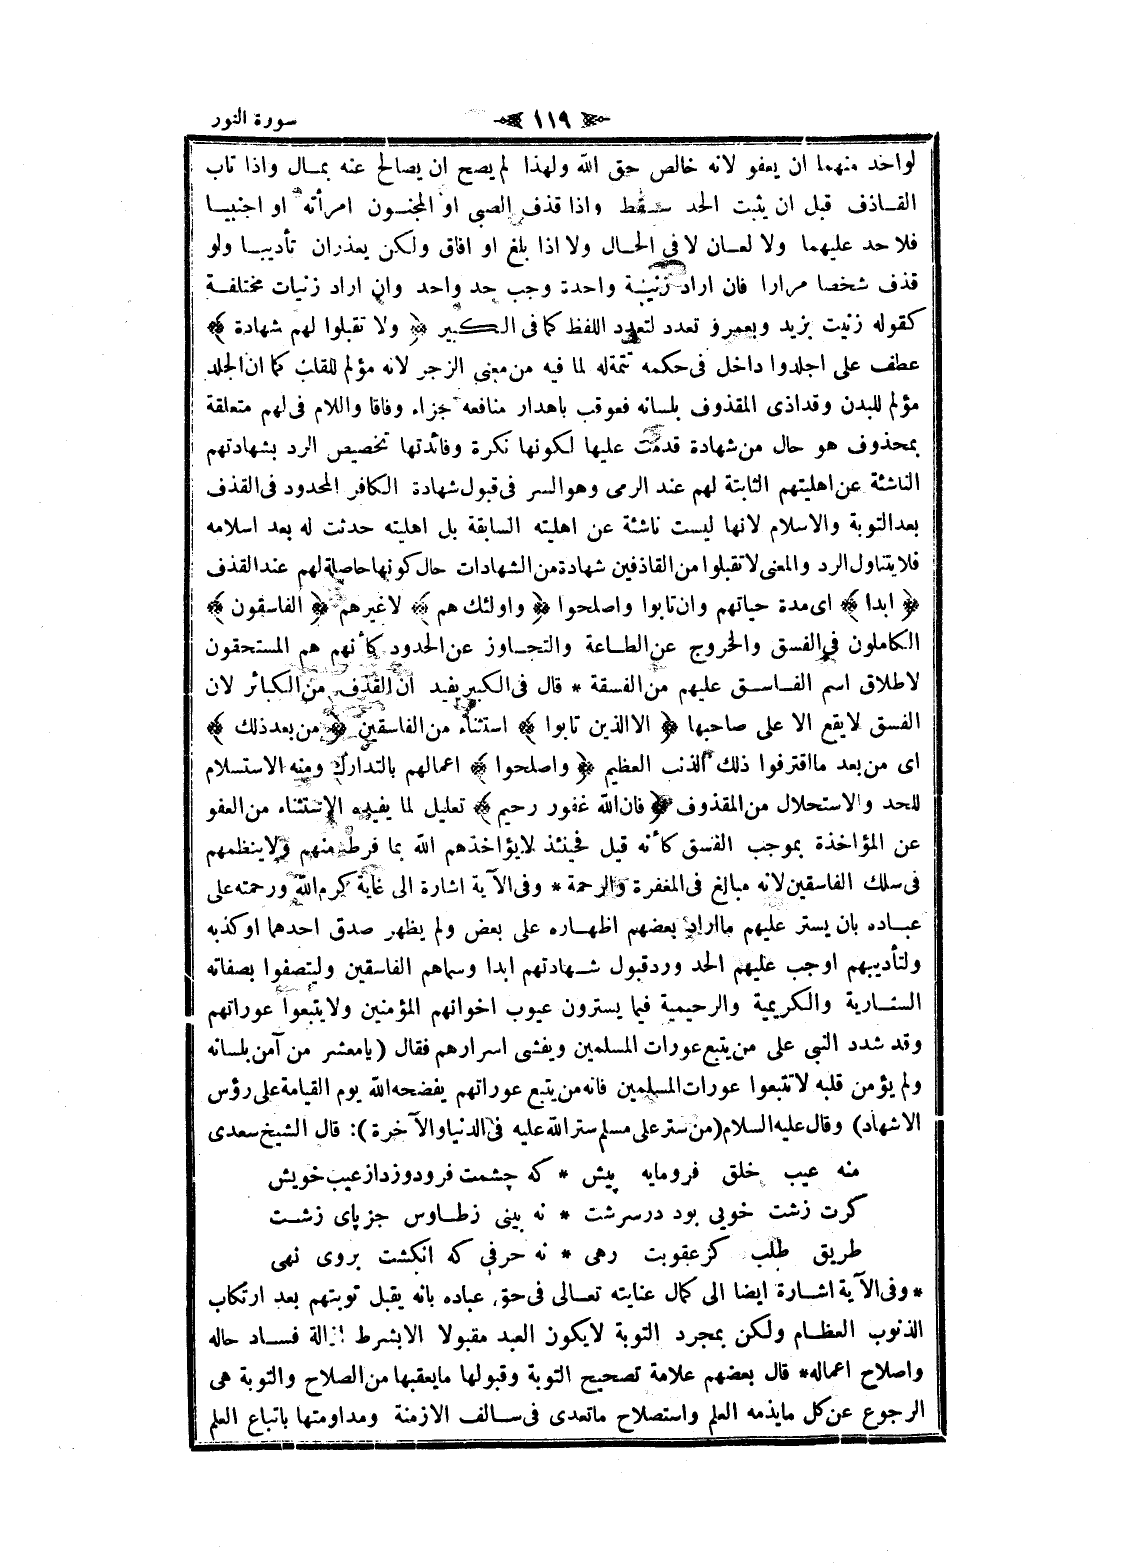 سورة النور
١١٩
لواحد منهما ان يعفو لانه خالص حق الله ولهذا لم يصح ان يصالح عنه بمال واذا تاب
القاذف قبل ان يثبت الحد سقط واذا قذف الصبى او المجنون امرأته او اجنبيا
فلا حد عليهما ولا لعان لا فى الحال ولا اذا بلغ او افاق ولكن يعذران تأديبا ولو
قذف شخصا مرارا فان اراد زنية واحدة وجب حد واحد وان اراد زنيات مختلفة
كقوله زنيت بزيد وبعمرو تعدد لتعدد اللفظ كما فى الكبير ﴿ ولا تقبلوا لهم شهادة ﴾
عطف على اجلدوا داخل فى حكمه تتمة له لما فيه من معنى الزجر لانه مؤلم للقلب كما ان الجلد
مؤلم للبدن وقد اذى المقذوف بلسانه فعوقب باهدار منافعه جزاء وفاقا واللام فى لهم متعلقة
بمحذوف هو حال من شهادة قدمت عليها لكونها نكرة وفائدتها تخصيص الرد بشهادتهم
الناشئة عن اهليتهم الثابتة لهم عند الرمى وهو السر فى قبول شهادة الكافر المحدود فى القذف
بعد التوبة والاسلام لانها ليست ناشئة عن اهليته السابقة بل اهليته حدثت له بعد اسلامه
فلا يتناول الرد والمعنى لا تقبلوا من القاذفين شهادة من الشهادات حال كونها حاصلة لهم عند القذف
﴿ ابدا ﴾ اى مدة حياتهم وان تابوا واصلحوا ﴿ واولئك هم ﴾ لا غيرهم ﴿ الفاسقون ﴾
الكاملون فى الفسق والخروج عن الطاعة والتجاوز عن الحدود كأنهم هم المستحقون
لاطلاق اسم الفاسق عليهم من الفسقة * قال فى الكبير يفيد ان القذف من الكبائر لان
الفسق لا يقع الا على صاحبها ﴿ الا الذين تابوا ﴾ استثناء من الفاسقين ﴿ من بعد ذلك ﴾
اى من بعد ما اقترفوا ذلك الذنب العظيم ﴿ واصلحوا ﴾ اعمالهم بالتدارك ومنه الاستسلام
للحد والاستحلال من المقذوف ﴿ فان الله غفور رحيم ﴾ تعليل لما يفيده الاستثناء من العفو
عن المؤاخذة بموجب الفسق كأنه قيل فحينئذ لا يؤاخذهم الله بما فرط منهم ولا ينظمهم
فى سلك الفاسقين لانه مبالغ فى المغفرة والرحمة * وفى الآية اشارة الى غاية كرم الله ورحمته على
عباده بان يستر عليهم ما اراد بعضهم اظهاره على بعض ولم يظهر صدق احدهما او كذبه
ولتأديبهم اوجب عليهم الحد ورد قبول شهادتهم ابدا وسماهم الفاسقين وليتصفوا بصفاته
الستارية والكريمية والرحيمية فيما يسترون عيوب اخوانهم المؤمنين ولا يتبعوا عوراتهم
وقد شدد النبى على من يتبع عورات المسلمين ويفشى اسرارهم فقال ( يا معشر من آمن بلسانه
ولم يؤمن قلبه لا تتبعوا عورات المسلمين فانه من يتبع عوراتهم يفضحه الله يوم القيامة على رؤس
الاشهاد) وقال عليه السلام (من ستر على مسلم ستر الله عليه فى الدنيا والآخرة ): قال الشيخ سعدى
منه عيب خلق فرومايه پيش * كه چشمت فرودوزد از عيب خويش
كرت زشت خويى بود در سرشت * نه بينى ز طاوس جز پاى زشت
طريق طلب كز عقوبت رهى * نه حرفى كه انكشت بروى نهى
* وفى الآية اشارة ايضا الى كمال عنايته تعالى فى حق عباده بانه يقبل توبتهم بعد ارتكاب
الذنوب العظام ولكن بمجرد التوبة لا يكون العبد مقبولا الا بشرط ازالة فساد حاله
واصلاح اعماله * قال بعضهم علامة تصحيح التوبة وقبولها ما يعقبها من الصلاح والتوبة هى
الرجوع عن كل ما يذمه العلم واستصلاح ما تعدى فى سالف الازمنة ومداومتها باتباع العلم